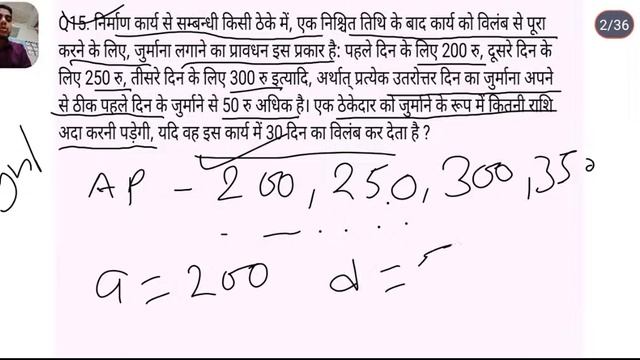 2/36
Q15. निर्माण कार्य से सम्बन्धी किसी ठेके में, एक निश्चित तिथि के बाद कार्य को विलंब से पूरा
करने के लिए, जुर्माना लगाने का प्रावधन इस प्रकार है: पहले दिन के लिए 200 रु, दूसरे दिन के
लिए 250 रु, तीसरे दिन के लिए 300 रु इत्यादि, अर्थात् प्रत्येक उतरोत्तर दिन का जुर्माना अपने
से ठीक पहले दिन के जुर्माने से 50 रु अधिक है। एक ठेकेदार को जुर्माने के रूप में कितनी राशि
अदा करनी पड़ेगी, यदि वह इस कार्य में 30 दिन का विलंब कर देता है ?
AP - 200, 250, 300, 350
a = 200 d =